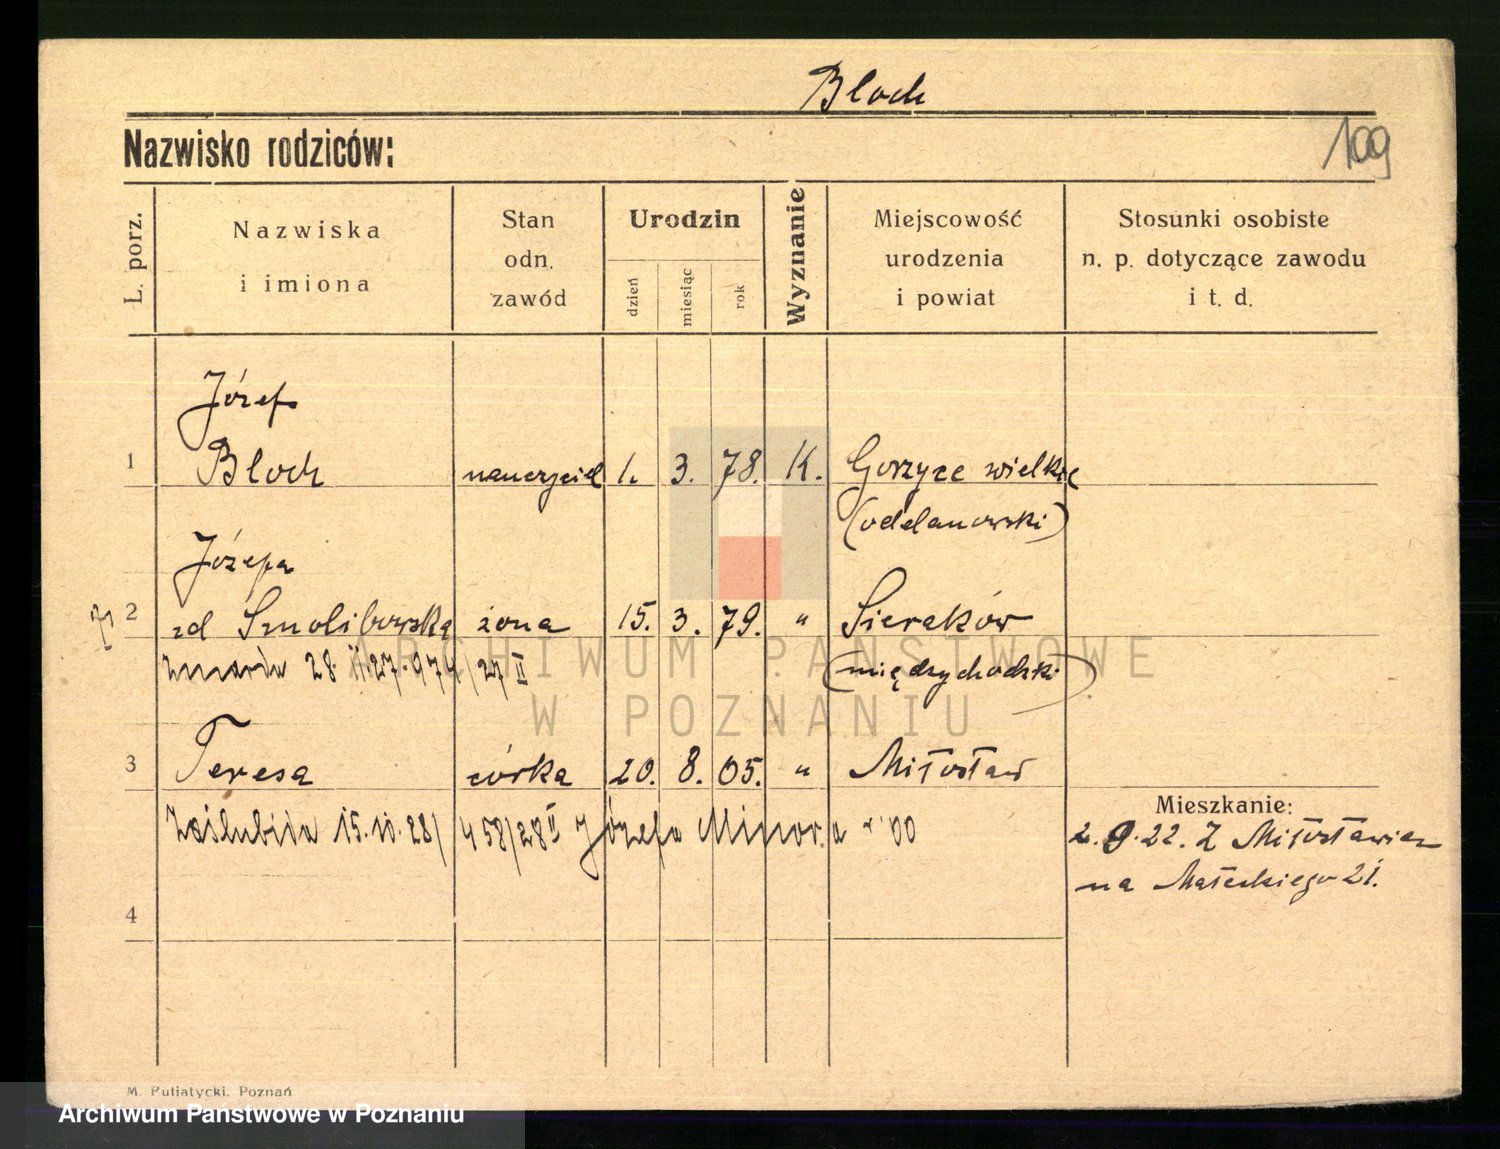 Bloch
Nazwisko rodziców:
109
L. porz.
Nazwiska
i imiona
Stan
odn.
zawód
Urodzin
dzień
miesiąc
rok
Wyznanie
Miejscowość
urodzenia
i powiat
Stosunki osobiste
n. p. dotyczące zawodu
i t. d.
Józef
1 Bloch nauczyciel 1. 3. 78. K. Gorzyce wielkie
(odolanowski)
Józefa
2 zd Smolibowska żona 15. 3. 79. " Sieraków
zmarła 28. II. 27. 974/27 II (międzychodzki)
3 Teresa córka 20. 8. 05. " Miłosław
zaślubiła 15.10.28/ 458/28 II Józefa Minora '00
Mieszkanie:
2.9.22. Z Miłosławia
na Małeckiego 21.
4
M. Putiatycki, Poznań
ARCHIWUM PAŃSTWOWE
W POZNANIU
Archiwum Państwowe w Poznaniu